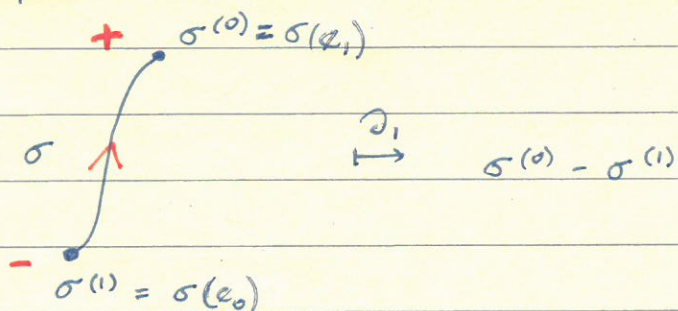 + σ^(0) = σ(e_1)
σ ∂_1 ↦ σ^(0) - σ^(1)
-
σ^(1) = σ(e_0)